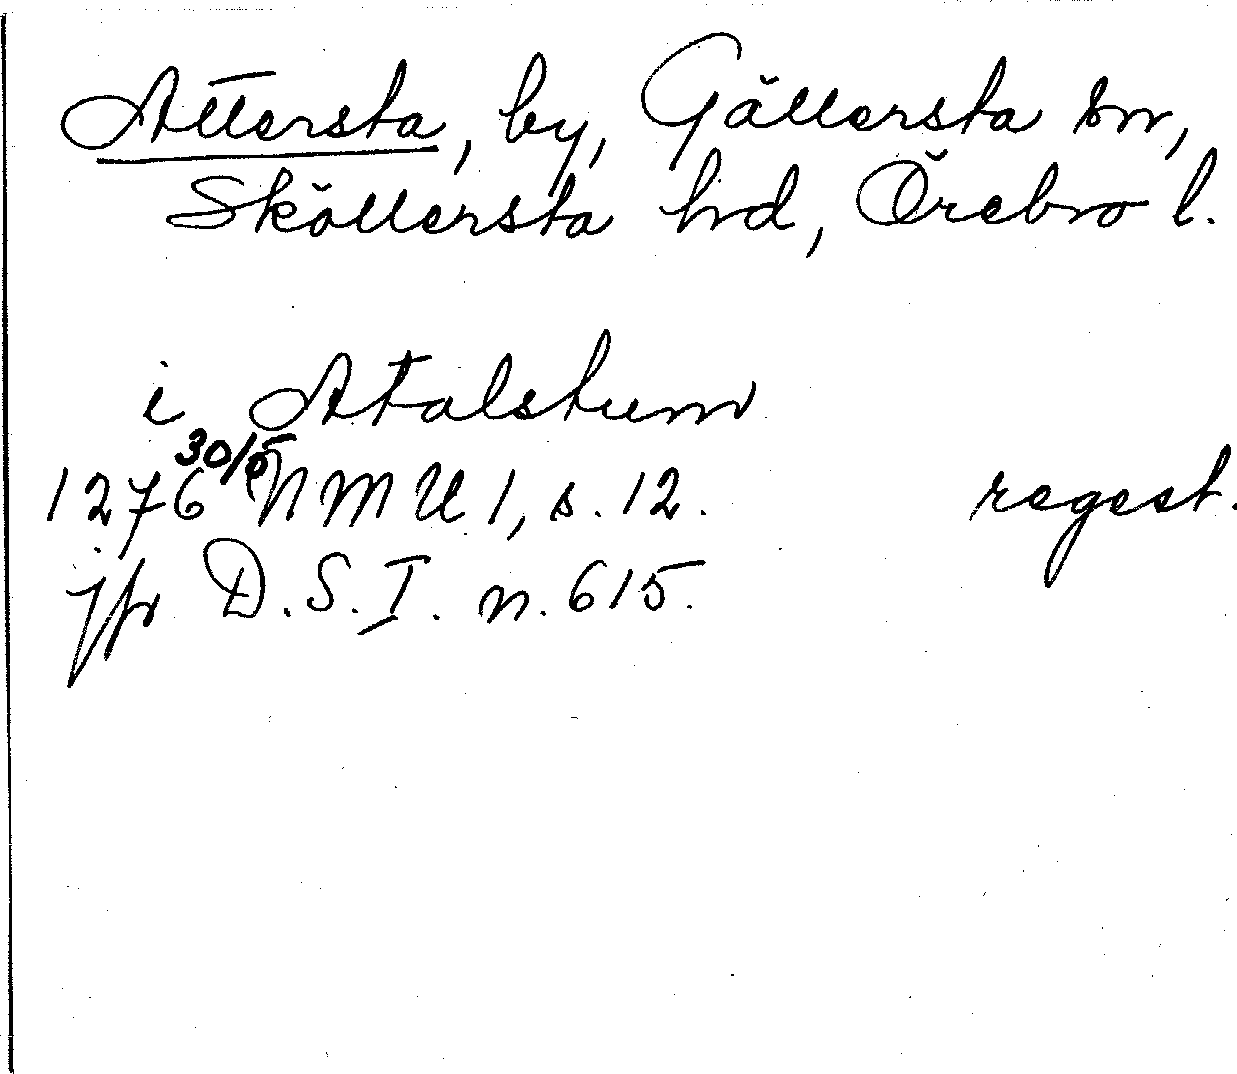 Attersta, by, Gällersta sn,
Sköllersta hd, Örebro l.
i Atalstum
1276 30/5 NMU 1, s. 12. regest.
jfr D.S.I. n. 615.